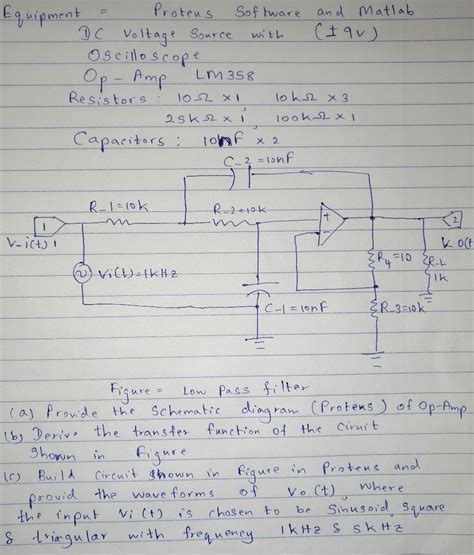 Equipment = Proteus Software and Matlab
DC Voltage Source with (±9v)
Oscilloscope
Op-Amp LM358
Resistors : 10Ω ×1, 10kΩ ×3
25kΩ ×1, 100kΩ ×1
Capacitors : 10nF ×2
C-2=10nF
R-1=10k
R-2=10k
1
V-i(t) 1
+
-
2
V-O(t
Vi(t)=1kHz
R4=10
R-L
1k
C-1=10nF
R-3=10k
Figure = Low Pass filter
(a) Provide the Schematic diagram (Proteus) of Op-Amp
(b) Derive the transfer function of the Ciruit
Shown in Figure
(c) Build Circuit Shown in Figure in Proteus and
provid the waveforms of Vo(t), where
the input Vi(t) is chosen to be Sinusoid, Square
& triangular with frequency 1kHz & 5kHz